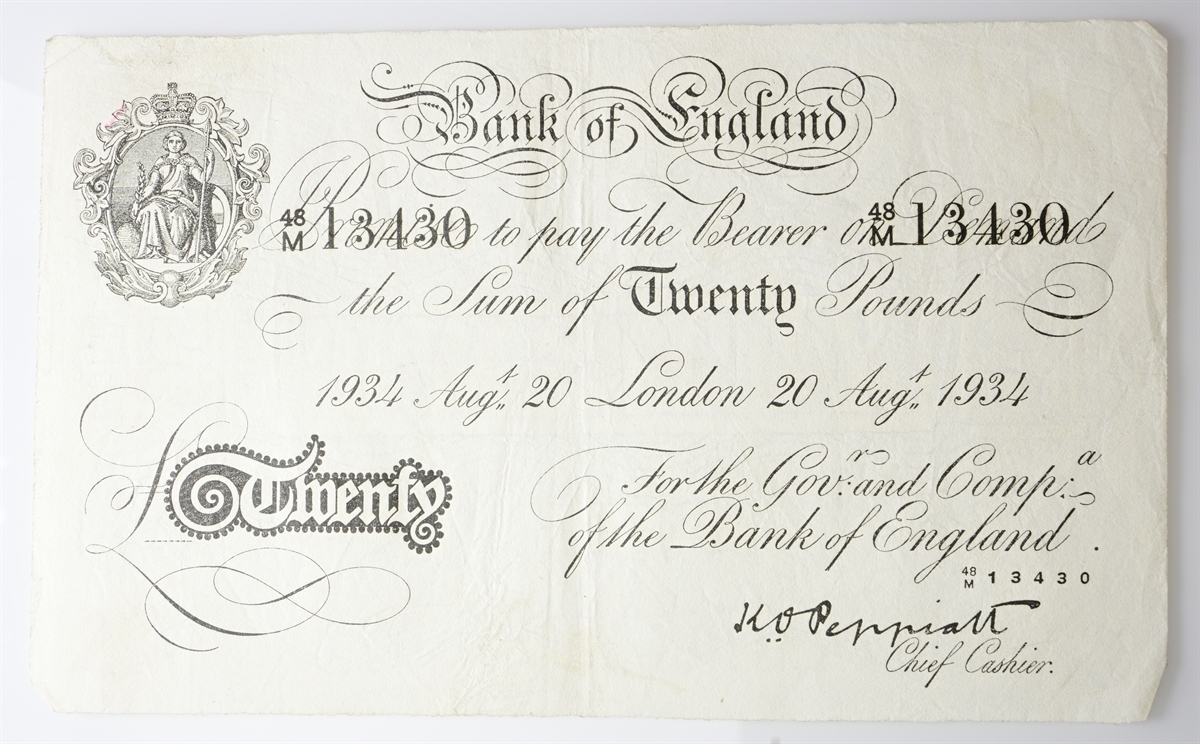 Bank of England
48/M 13430 I Promise to pay the Bearer on Demand 48/M 13430
the Sum of Twenty Pounds
1934 Augt 20 London 20 Augt 1934
£ Twenty
For the Govr: and Compa:
of the Bank of England.
48/M 13430
K.O. Peppiatt
Chief Cashier.